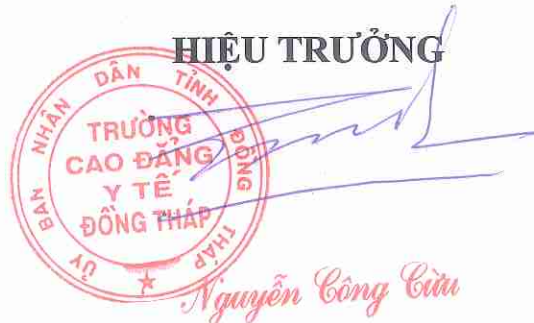 HIỆU TRƯỞNG
ỦY BAN NHÂN DÂN TỈNH ĐỒNG THÁP
TRƯỜNG
CAO ĐẲNG
Y TẾ
ĐỒNG THÁP
Nguyễn Công Cừu